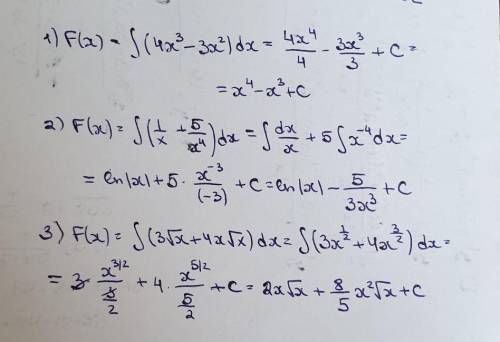 1) F(x) = ∫(4x³ − 3x²)dx = 4x⁴/4 − 3x³/3 + C =
= x⁴ − x³ + C
2) F(x) = ∫(1/x + 5/x⁴)dx = ∫dx/x + 5∫x⁻⁴dx =
= ln|x| + 5 · x⁻³/(−3) + C = ln|x| − 5/3x³ + C
3) F(x) = ∫(3√x + 4x√x)dx = ∫(3x^(1/2) + 4x^(3/2))dx =
= 3 · x^(3/2)/(3/2) + 4 · x^(5/2)/(5/2) + C = 2x√x + 8/5 x²√x + C